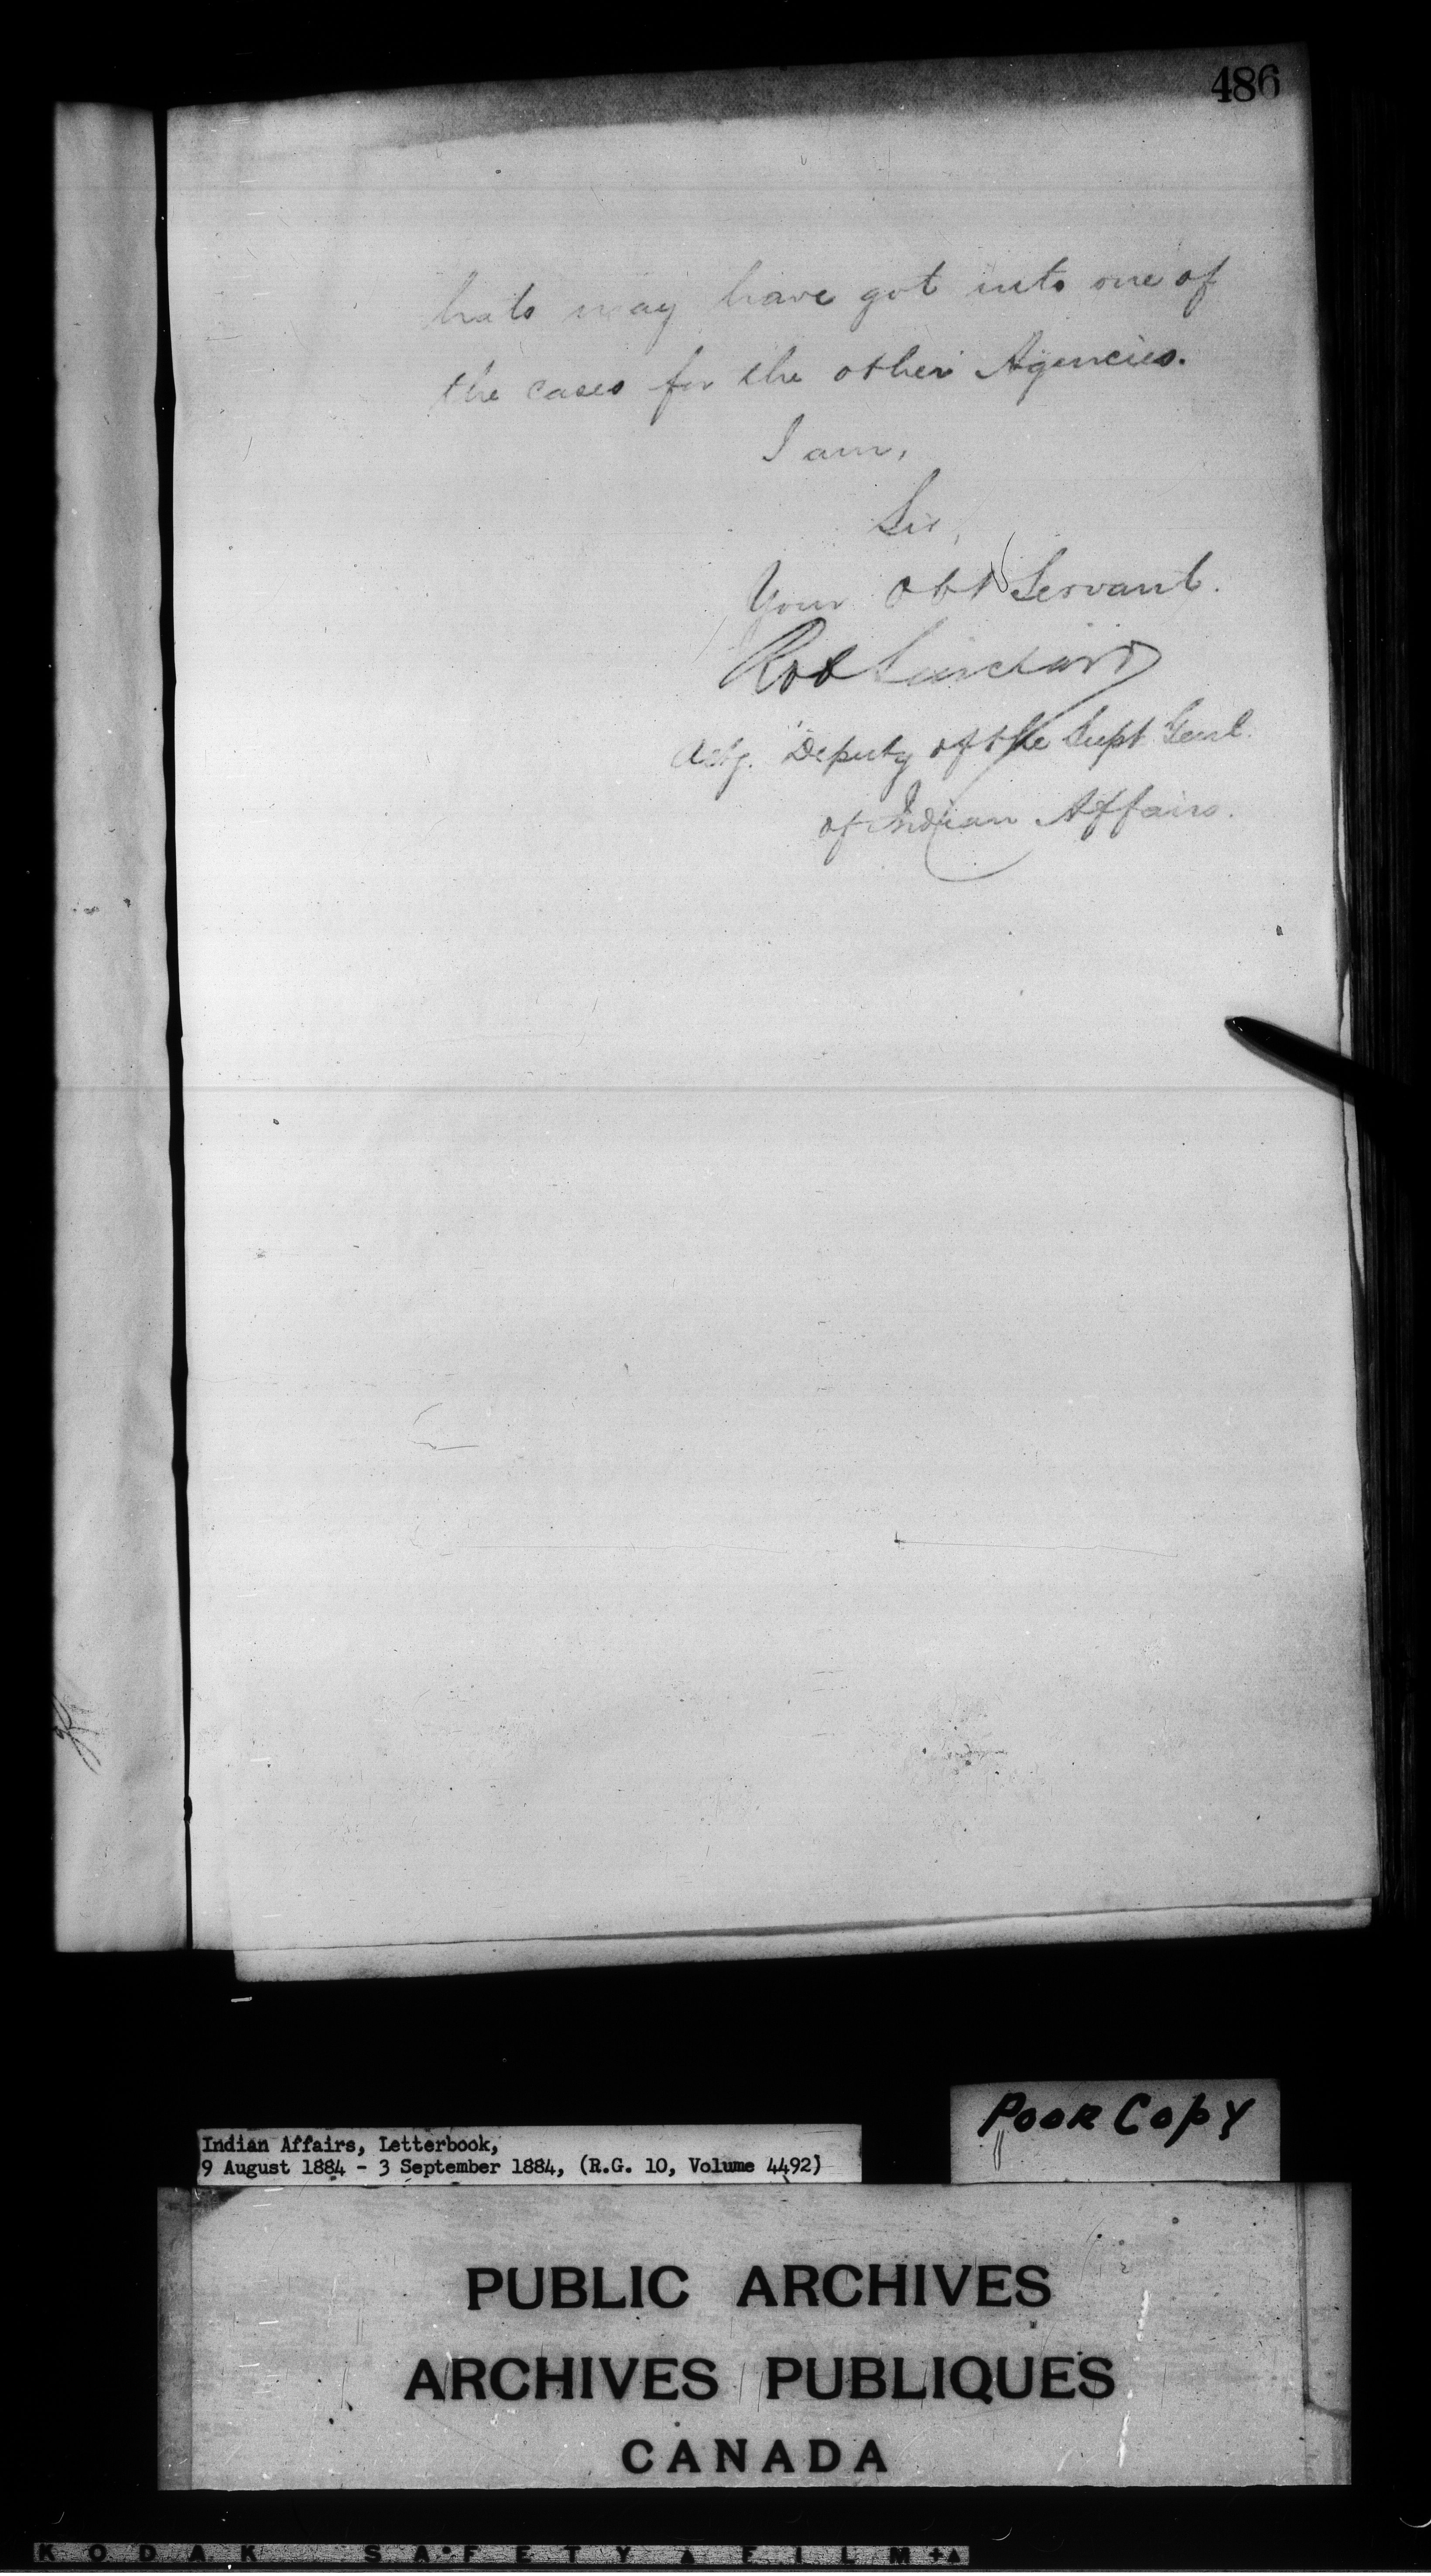 486
hats may have got into one of
the cases for the other Agencies.
I am,
Sir,
Your Obt Servant.
Rob Sinclair
Actg. Deputy of the Supt Genl.
of Indian Affairs.
Poor Copy
Indian Affairs, Letterbook,
9 August 1884 - 3 September 1884, (R.G. 10, Volume 4492)
PUBLIC ARCHIVES
ARCHIVES PUBLIQUES
CANADA
KODAK SAFETY FILM